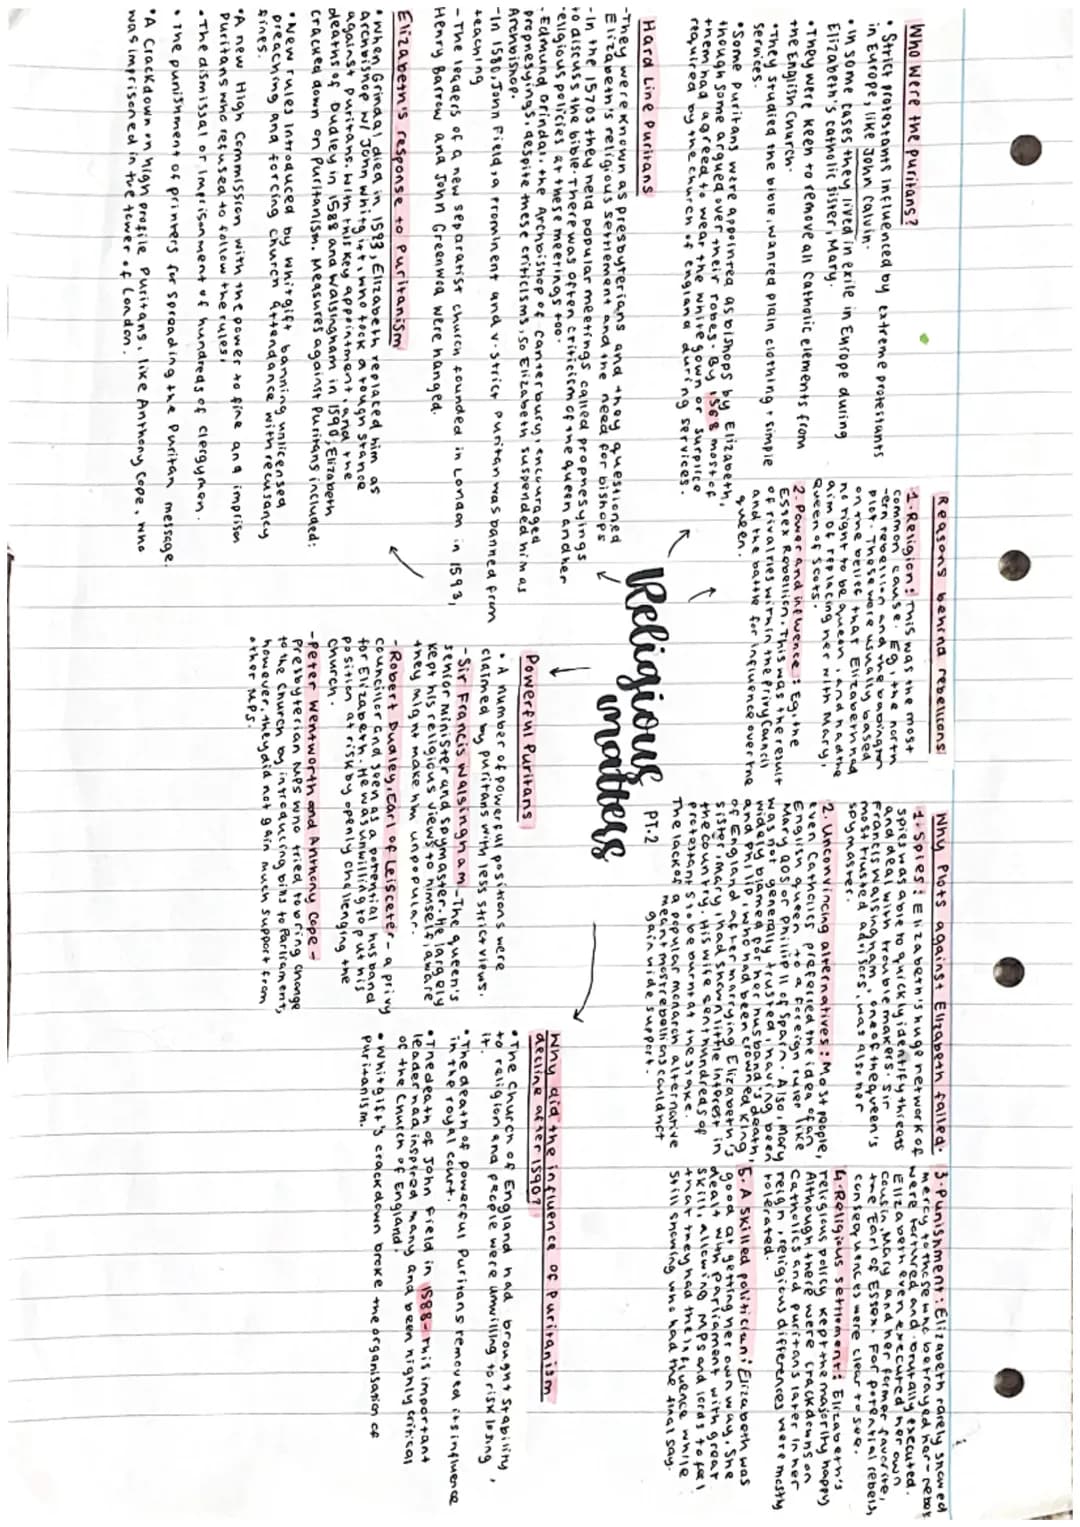 Who were the puritans?
• Strict protestants influenced by extreme protestants
in Europe, like John Calvin.
• In some cases they lived in exile in Europe during
Elizabeth's catholic sister, Mary.
• They were keen to remove all catholic elements from
the English Church.
• They studied the bible, wanted plain clothing + simple
services.
• Some Puritans were appointed as bishops by Elizabeth,
though some argued over their robes. By 1568 most of
them had agreed to wear the white gown or surplice
required by the church of england during services.
Hard Line Puritans
- They were known as presbyterians and they questioned
Elizabeth's religious settlement and the need for bishops
- In the 1570s they held popular meetings called prophesyings
to discuss the bible. There was often criticism of the queen and her
religious policies at these meetings too.
- Edmund Grindal, the Archbishop of Canterbury, encouraged
prophesyings, despite these criticisms, so Elizabeth suspended him as
Archbishop.
- In 1580, John Field, a prominent and v. strict puritan was banned from
teaching
- The leaders of a new separatist church founded in London in 1593,
Henry Barrow and John Greenwd were hanged.
Elizabeth's response to Puritanism
• When, Grindal died in 1583, Elizabeth replaced him as
archbishop w/ John Whitgift, who took a tough stance
against Puritans. With this key appointment, and the
deaths of Dudley in 1588 and Walsingham in 1590, Elizabeth
cracked down on Puritanism. Measures against Puritans included:
• New rules introduced by Whitgift banning unlicensed
preaching and forcing church attendance with recusancy
fines.
• A new High Commission with the power to fine and imprison
Puritans who refused to follow the rules.
• The dismissal or imprisonment of hundreds of clergymen.
• The punishment of printers for spreading the Puritan message.
• A Crackdown on high profile Puritans, like Anthony Cope, who
was imprisoned in the tower of London.
Reasons behind rebellions
1. Religion: This was the most
common cause. Eg, the north
-ern rebellion and the babington
plot. These were usually based
on the belief that Elizabeth had
no right to be queen, and had the
aim of replacing her with Mary,
Queen of Scots.
2. Power and influence: Eg, the
Essex Rebellion. This was the result
of rivalries within the Privy Council
and the battle for influence over the
queen.
Religious
matters
PT.2
Powerful Puritans
• A number of powerful positions were
claimed by puritans with less strict views.
- Sir Francis Walsingham - The queen's
senior minister and spymaster. He largely
kept his religious views to himself, aware
they might make him unpopular.
- Robert Dudley, Earl of Leicester - a privy
councillor and seen as a potential husband
for Elizabeth. He was unwilling to put his
position at risk by openly challenging the
church.
- Peter Wentworth and Anthony Cope -
Presbyterian MPs who tried to bring change
to the church by introducing bills to Parliament,
however, they did not gain much support from
other MPs.
Why Plots against Elizabeth failed.
1. Spies: Elizabeth's huge network of
spies was able to quickly identify threats
and deal with trouble makers. Sir
Francis Walsingham, one of the queen's
most trusted advisors, was also her
spymaster.
2. Unconvincing alternatives: Most people,
even Catholics preferred the idea of an
English queen to a foreign ruler like
Mary QOS or Phillip II of Spain. Also, Mary
was not generally trusted, having been
widely blamed for her husband's death,
and philip, who had been crowned King
of England after marrying Elizabeth's
sister, mary, had shown little interest in
the country. His wife sent hundreds of
protestants to be burnt at the stake.
The lack of a popular monarch alternative
meant most rebellions couldn't
gain wide support.
3. Punishment: Elizabeth rarely showed
mercy to those who betrayed her - rebels
were tortured and brutally executed.
Elizabeth even executed her own
cousin, Mary and her former favorite,
the Earl of Essex. For potential rebels,
consequences were clear to see.
4. Religious settlement: Elizabeth's
religious policy kept the majority happy
Although there were crackdowns on
Catholics and puritans later in her
reign, religious differences were mostly
tolerated.
5. A skilled politician: Elizabeth was
good at getting her own way. She
dealt with parliament with great
skill, allowing MPs and lords to feel
that they had the influence while
still showing who had the final say.
Why did the influence of Puritanism
decline after 1590?
• The Church of England had brought stability
to religion and people were unwilling to risk losing
it.
• The death of powerful Puritans removed its influence
in the royal court.
• The death of John Field in 1588 - this important
leader had inspired many and been highly critical
of the Church of England.
• Whitgift's crackdown broke the organisation of
Puritanism.